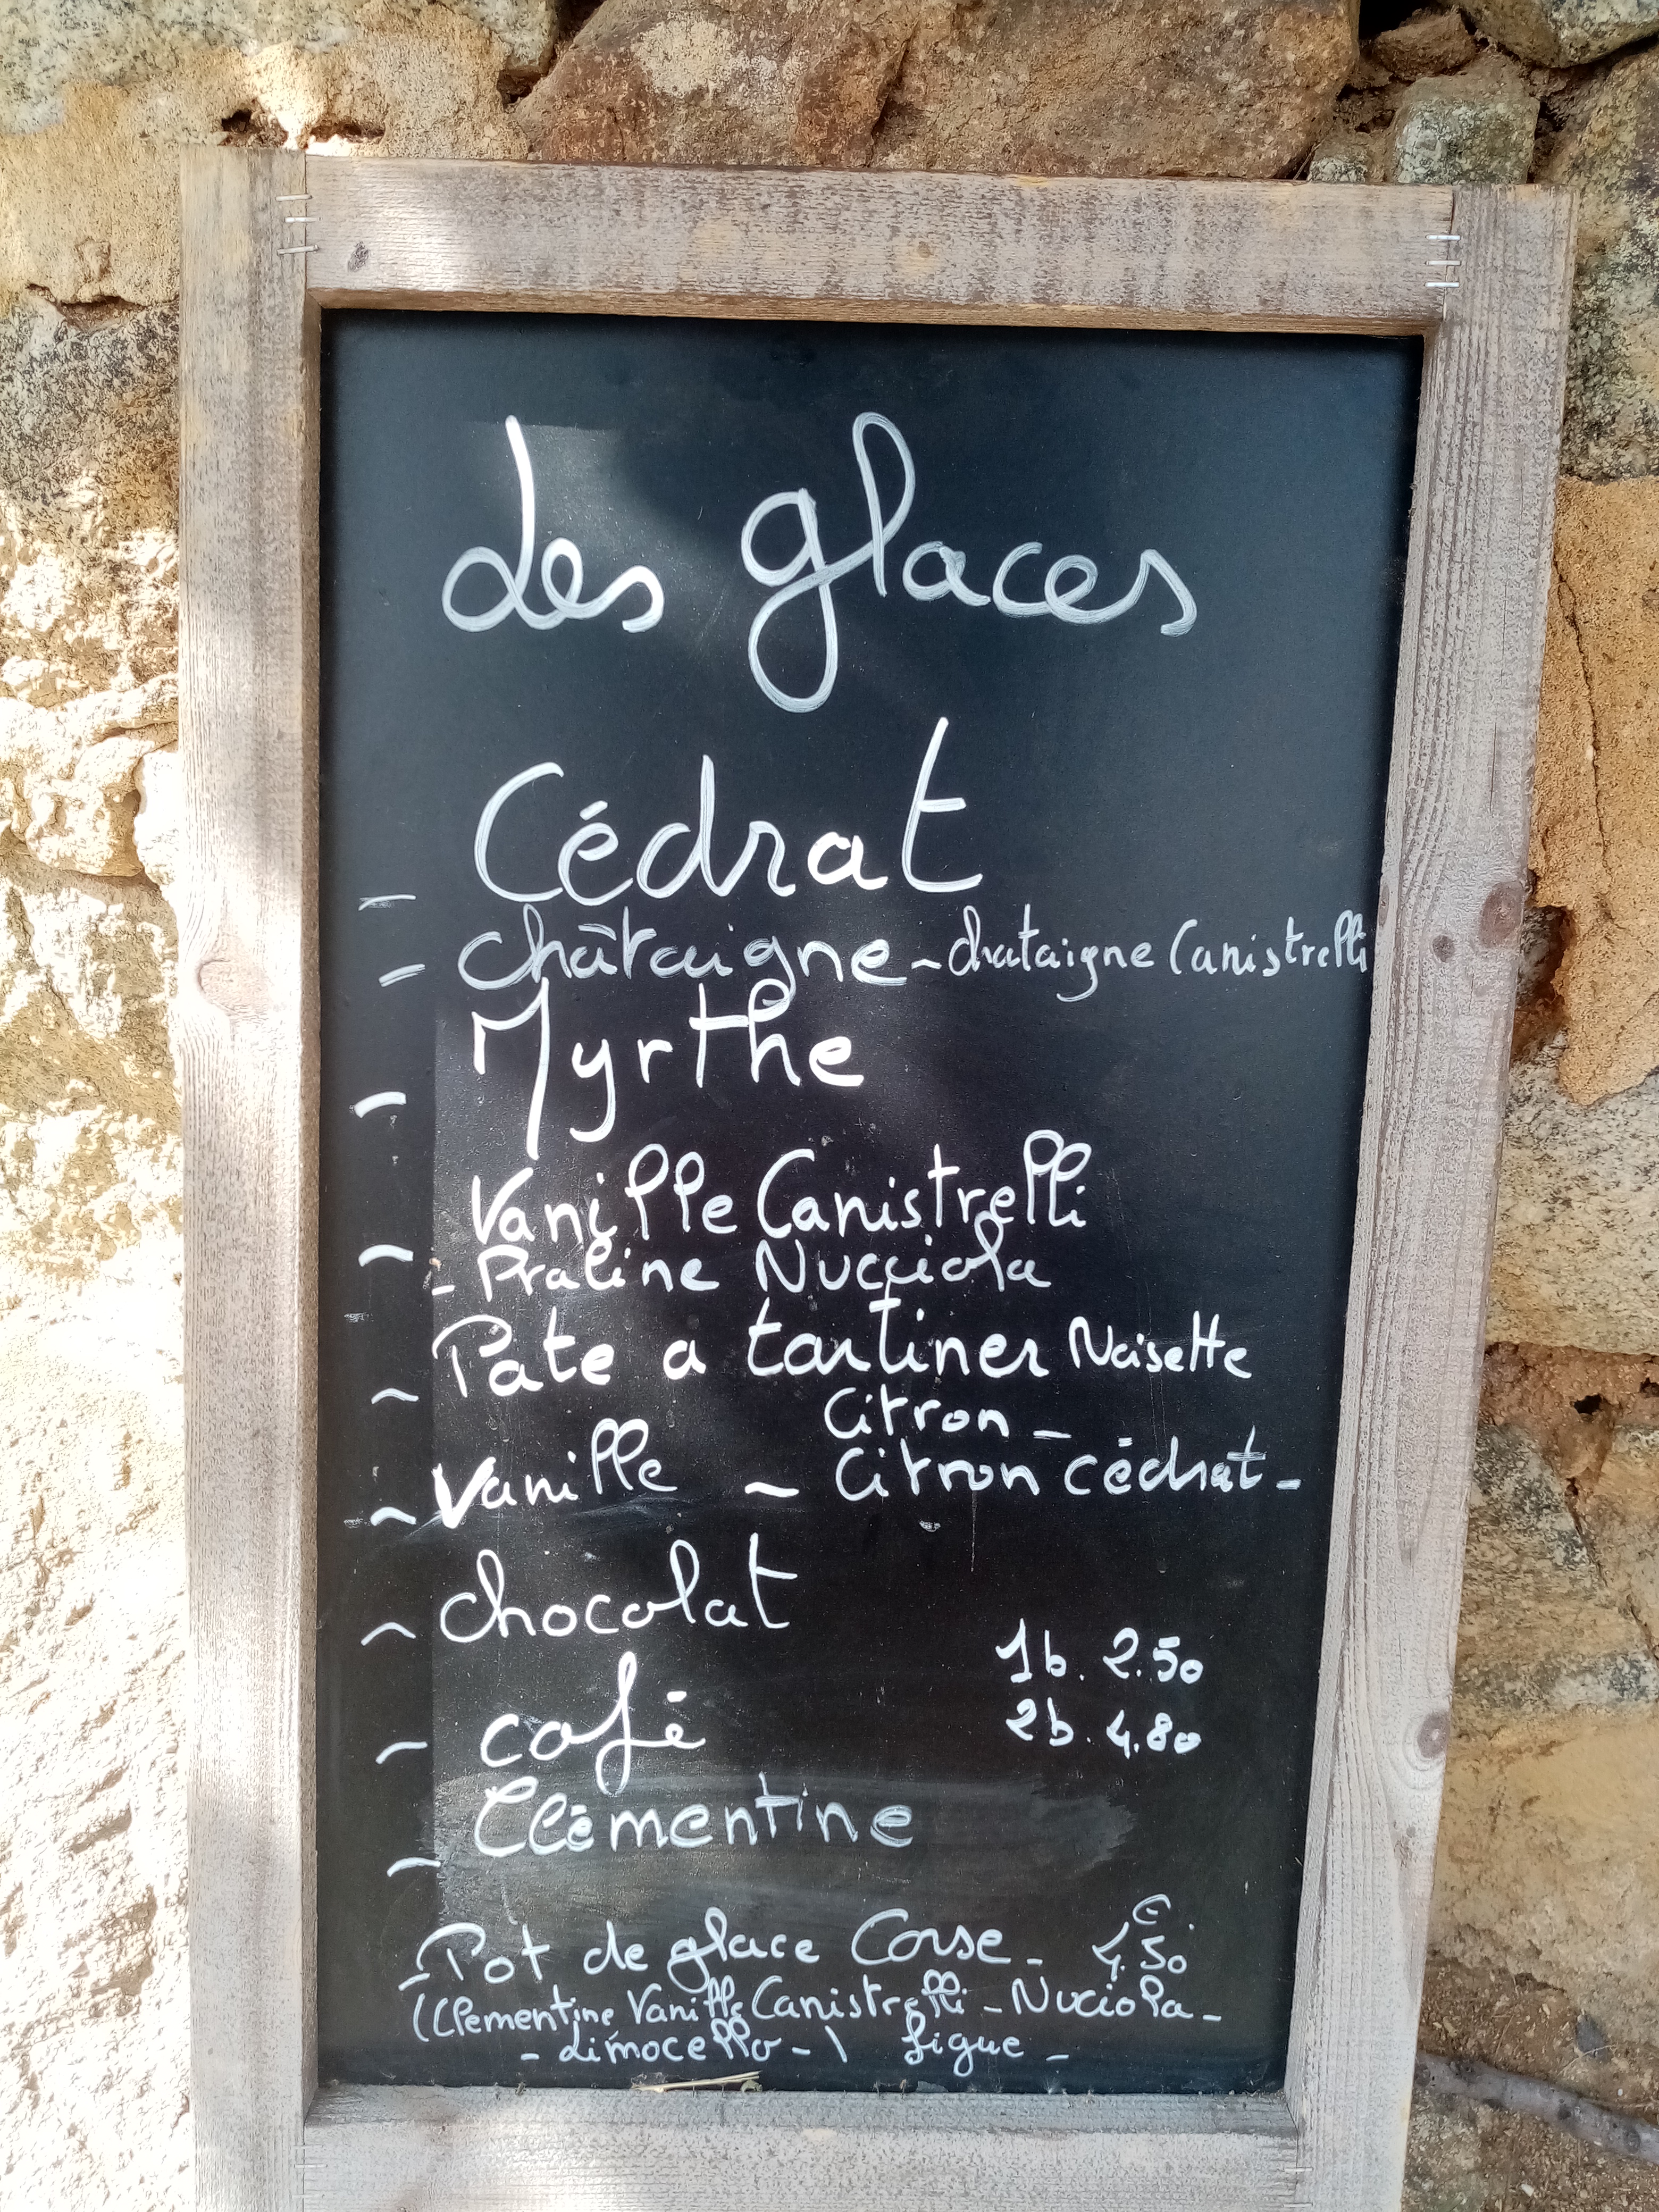 Les glaces
- Cédrat
- châtaigne - chataigne Canistrelli
- Myrthe
- Vanille Canistrelli
- Praline Nucciola
- Pate a tartiner Noisette
Citron -
- Vanille - Citron cédrat -
- chocolat
1b. 2.50
- café
2b. 4.80
- Clémentine
- Pot de glace Corse - 4.50 €
(Clementine Vanille Canistrelli - Nuciola -
- Limocello - \ figue -